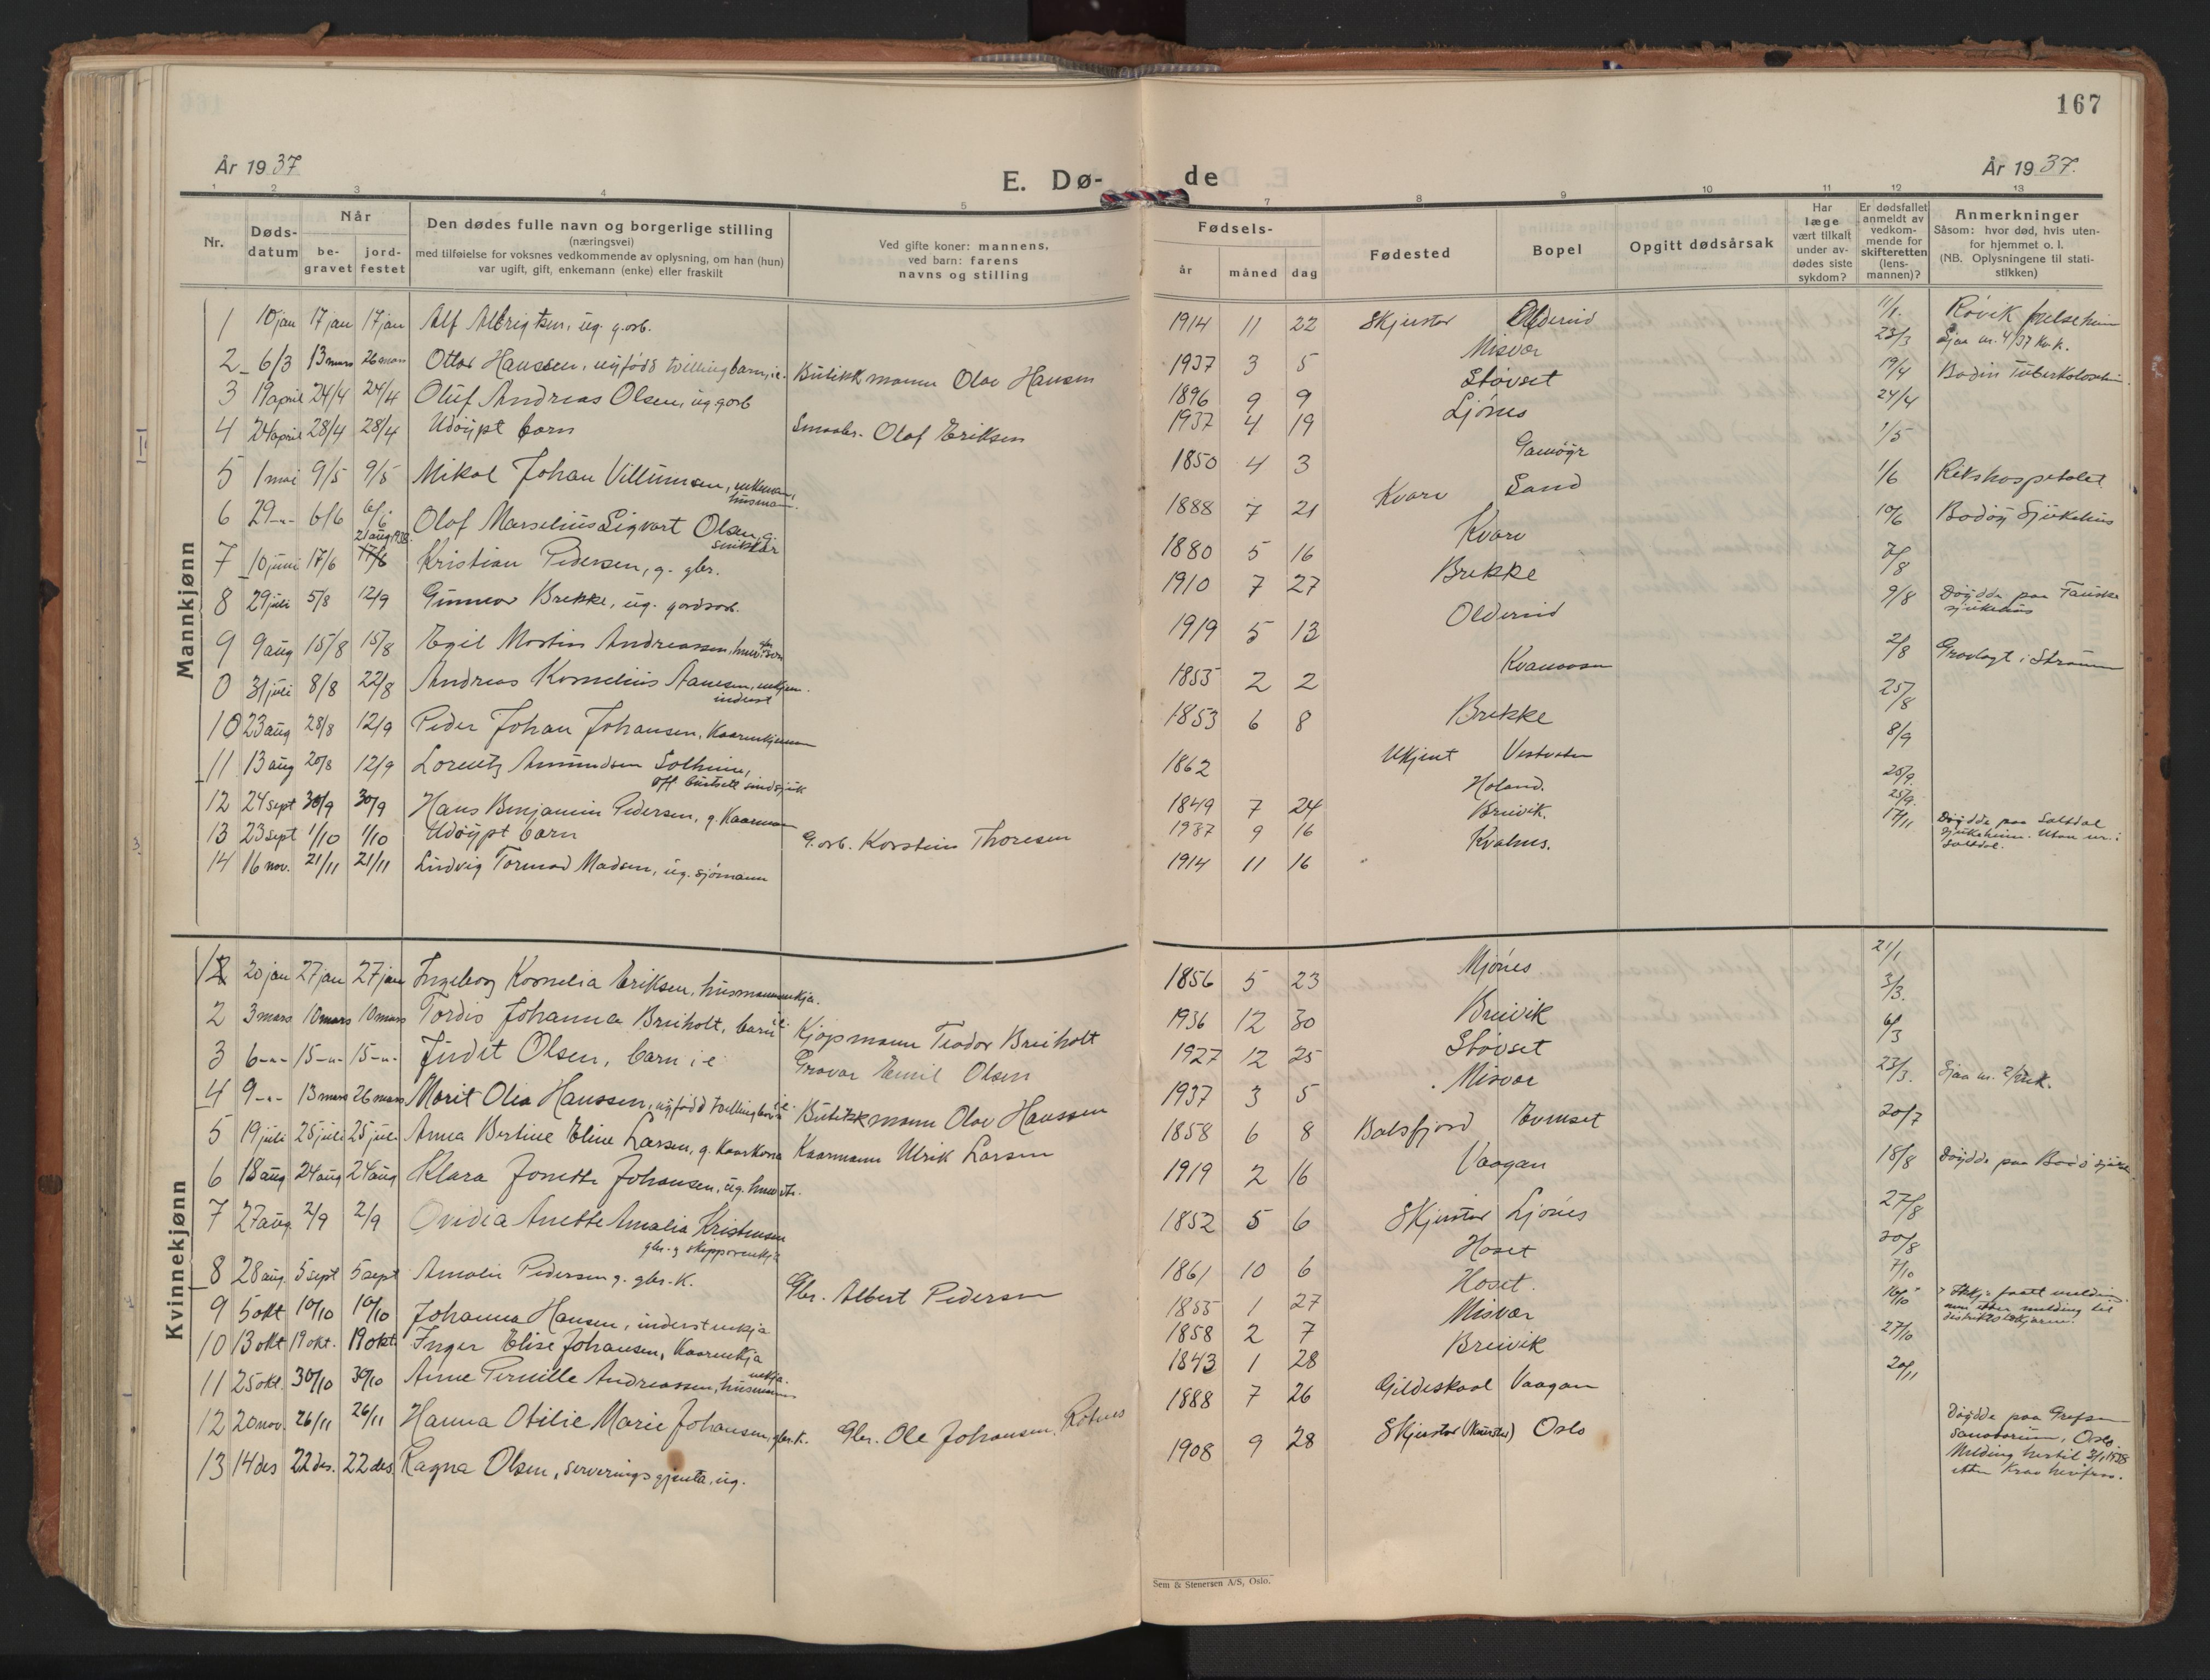 167
År 1937
E. Dø-
de
År 1937.
1 2 3 4 5 7 8 9 10 11 12 13
Nr.
Døds-
datum
Når
be-
gravet
jord-
festet
Den dødes fulle navn og borgerlige stilling
(næringsvei)
med tilføielse for voksnes vedkommende av oplysning, om han (hun)
var ugift, gift, enkemann (enke) eller fraskilt
Ved gifte koner: mannens,
ved barn: farens
navns og stilling
Fødsels-
år
måned
dag
Fødested
Bopel
Opgitt dødsårsak
Har
læge
vært tilkalt
under av-
dødes siste
sykdom?
Er dødsfallet
anmeldt av
vedkom-
mende for
skifteretten
(lens-
mannen)?
Anmerkninger
Såsom: hvor død, hvis uten-
for hjemmet o. l.
(NB. Oplysningene til stati-
stikken)
Mannkjønn
1 10 jan 17 jan 17 jan Alf Albrigtsen, ug. g.arb. 1914 11 22 Skjerstar Oldereid 11/1. Røvik
2 6/3 13 mars 26 mars Ottar Hanssen, nyfødd tvillingbarn, i.e. Butikkmann Olav Hansen 1937 3 5 Misvær 23/3 Sjaa nr. 4/37 kv.k.
3 19 april 24/4 24/4 Oluf Andreas Olsen, ug. garb 1896 9 9 Støvset 19/4 Bodin
4 24 april 28/4 28/4 Udøypt barn Smaabr. Olaf Eriksen 1937 4 19 Ljønes 24/4
5 1 mai 9/5 9/5 Mikal Johan Villumsen, enkeman, husmann. 1850 4 3 1/5
6 29-"- 6/6 6/6 Olaf Marselius Sigvart Olsen, g. snikkar 1888 7 21 Kvarv Sand 1/6 Rikshospitalet
7 10 juni 17/6 17/6 21 aug 1938 Kristian Pedersen, g. gbr. 1880 5 16 Kvarv 10/6 Bodøy Sjukehus
8 29 juli 5/8 12/9 Gunnar Brekke, ug. gardsarb. 1910 7 27 Brekke 7/8
9 9 aug 15/8 15/8 Egil Martin Andreassen, 1919 5 13 Oldereid 9/8 Døydde paa Fauske sjukehus
0 31 juli 8/8 22/8 Andreas Kornelius Aanesen, enkjem. inderst 1855 2 2 2/8 Gravlagt i Straum
10 23 aug 28/8 12/9 Peder Johan Johansen, Kaarenkjemann 1853 6 8 Brekke 25/8
11 13 aug 20/8 12/9 Lorentz Amundsen Solheim, off. bustsett sindsjuk 1862 Ukjent Vestvatn 8/9
12 24 sept 30/9 30/9 Hans Benjamin Pedersen, g. Kaarmann 1849 7 24 Holand. 25/9.
13 23 sept 1/10 1/10 Udøypt barn G.arb. Karstein Thoresen 1937 9 16 Breivik. 25/9.
14 16 nov. 21/11 21/11 Ludvig Tormod Madsen, ug. sjømann 1914 11 16 Kvalnes. 17/11 Døydde paa Saltdal sjukeheim. Utan nr. i Saltdal.
Kvinnekjønn
1 20 jan 27 jan 27 jan Ingeborg Kornelia Eriksen, husmannsenkja. 1856 5 23 Mjønes 21/1
2 3 mars 10 mars 10 mars Tordis Johanna Breiholt, barn i.e. Kjøpmann Teodor Breiholt 1936 12 30 Breivik 3/3.
3 6-"- 15-"- 15-"- Judit Olsen, barn i.e Gruvar Emil Olsen 1927 12 25 Støvset 6/3
4 9-"- 13 mars 26 mars Marit Olea Hanssen, nyfødd tvillingbarn i.e. Butikkmann Olav Hanssen 1937 3 5 Misvær 23/3. Sjaa nr. 2/
5 19 juli 25 juli 25 juli Anna Bertine Eline Larsen, g. Kaarkona Kaarmann Ulrik Larsen 1858 6 8 Balsfjord Evenset 20/7
6 18 aug 24 aug 24 aug Klara Jonette Johansen, ug. 1919 2 16 Vaagan 18/8 Døydde paa Bodø sjukeh.
7 27 aug. 2/9 2/9 Ovidia Anette Amalia Kristensen gbr. og skipparenkja 1852 5 6 Skjerstar Ljønes 27/8
8 28 aug. 5 sept 5 sept Amalie Pedersen g. gbr. k. Gbr. Albert Pedersen 1861 10 6 Hoset 30/8
9 5 okt 10/10 10/10 Johanna Hansen, inderstenkja 1855 1 27 Hoset. 7/10
10 13 okt 19 okt. 19 okt. Inger Elise Johansen, Kaarenkja 1858 2 7 Misvær 16/10 Ikkje faatt melding, men etter melding til distriktslækjaren.
11 25 okt. 30/10 30/10 Anne Pernille Andreassen, husmannsenkja. 1843 1 28 Breivik 27/10
12 20 nov. 26/11 26/11 Hanna Otilie Marie Johansen, gbr. k. Gbr. Ole Johansen, 1888 7 26 Gildeskaal Vaagan 20/11
13 14 des 22 des. 22 des. Ragna Olsen, serveringsgjenta, ug. 1908 9 28 Skjerstar Oslo Døydde paa Grefsen Sanatorium, Oslo. Melding hertil 3/1 1938
Sem & Stenersen A/S, Oslo.